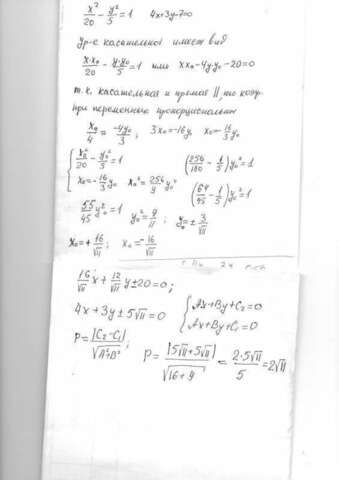 x²/20 - y²/5 = 1   4x+3y-7=0
ур-е касательной имеет вид
x·x₀/20 - y·y₀/5 = 1 или xx₀-4y·y₀-20=0
т.к. касательная и прямая ||, то коэф.
при переменных пропорциональны
x₀/4 = -4y₀/3 ; 3x₀=-16y₀ x₀=-16/3 y₀
{ x₀²/20 - y₀²/5 = 1   (256/180 - 1/5) y₀²=1
x₀=-16/3 y₀   x₀²=256/9 y₀²   (64/45 - 1/5) y₀²=1
55/45 y₀²=1   y₀²=9/11 ; y₀=± 3/√11
x₀=+ 16/√11 ; x₀=- 16/√11
16/√11 x + 12/√11 y ± 20=0;
4x+3y±5√11=0   { Ax+By+C₂=0
Ax+By+C₁=0
P= |C₂-C₁|/√A²+B² ;   P= |5√11+5√11|/√16+9 = 2·5√11/5 = 2√11